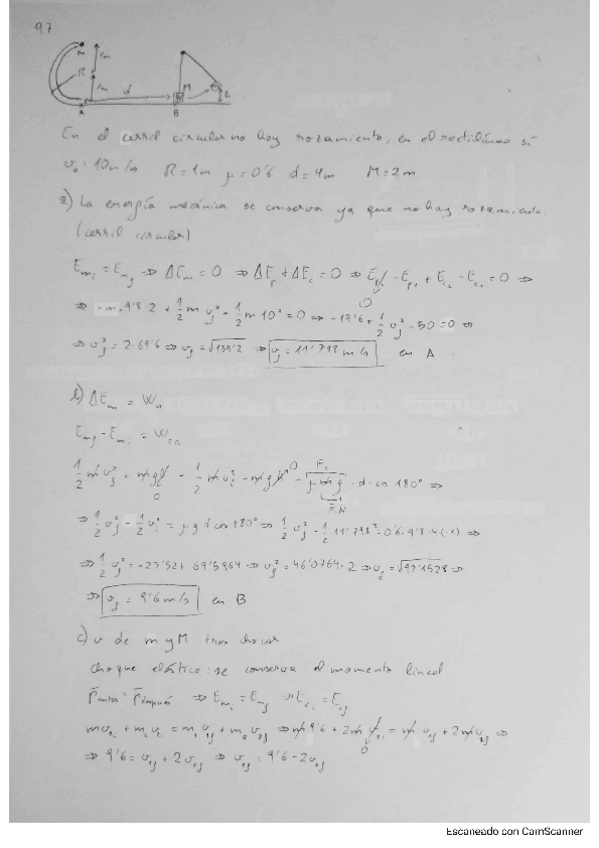 97
m
1m
R
1m
d
M
A
B
En el carril circular no hay rozamiento, en el rectilíneo sí
v₀ = 10 m/s R = 1m μ = 0'6 d = 4m M = 2m
a) La energía mecánica se conserva ya que no hay rozamiento.
(carril circular)
Emᵢ = Em_f ⇒ ΔEm = 0 ⇒ ΔEp + ΔEc = 0 ⇒ Ep_f - Epᵢ + Ec_f - Ecᵢ = 0 ⇒
0
⇒ -m·9'8·2 + 1/2 m v_f² - 1/2 m 10² = 0 ⇒ -19'6 + 1/2 v_f² - 50 = 0 ⇒
⇒ v_f² = 2·69'6 ⇒ v_f = √139'2 ⇒ v_f = 11'798 m/s en A
b) ΔEm = W
Em_f - Emᵢ = W
1/2 m v_f² + m g - 1/2 m vᵢ² - m g 0 = μ m g · d · cos 180° ⇒
0
⇒ 1/2 v_f² - 1/2 vᵢ² = μ g d cos 180° ⇒ 1/2 v_f² - 1/2 11'798² = 0'6·9'8·4·(-1) ⇒
⇒ 1/2 v_f² = -23'52 + 69'5964 ⇒ v_f² = 46'0764·2 ⇒ v_f = √92'1528 ⇒
⇒ v_f = 9'6 m/s en B
c) v de m y M tras chocar
choque elástico: se conserva el momento lineal
p antes = p después ⇒ Emᵢ = Em_f ⇒ Ecᵢ = Ec_f
m v₁ᵢ + m₂ v₂ᵢ = m₁ v₁f + m₂ v₂f ⇒ m 9'6 + 2m v₂ᵢ = m v₁f + 2m v₂f ⇒
0
⇒ 9'6 = v₁f + 2v₂f ⇒ v₁f = 9'6 - 2v₂f
Escaneado con CamScanner